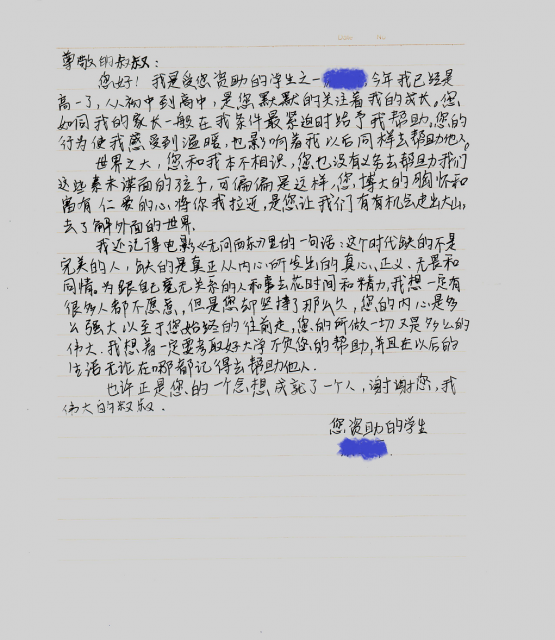 尊敬的叔叔：
您好！我是受您资助的学生之一 今年我已经是
高一了，从初中到高中，是您默默的关注着我的成长，您
如同我的家长一般在我条件最紧迫时给予我帮助，您的
行为使我感受到温暖，也影响着我以后同样去帮助他人。
世界之大，您和我本不相识，您也没有义务去帮助我们
这些素未谋面的孩子，可偏偏是这样，您，博大的胸怀和
富有仁爱的心，将你我拉近，是您让我们有有机会走出大山，
去了解外面的世界。
我还记得电影《无问西东》里的一句话：这个时代缺的不是
完美的人，缺的是真正从内心所发出的真心、正义、无畏和
同情。为跟自己毫无关系的人和事去花时间和精力，我想一定有
很多人都不愿意，但是您却坚持了那么久，您的内心是多
么强大以至于您始终的往前走，您的所做一切又是多么的
伟大。我想着一定要考取好大学不负您的帮助，并且在以后的
生活无论在哪都记得去帮助他人。
也许正是您的一个念想成就了一个人，谢谢您，我
伟大的叔叔．
您资助的学生